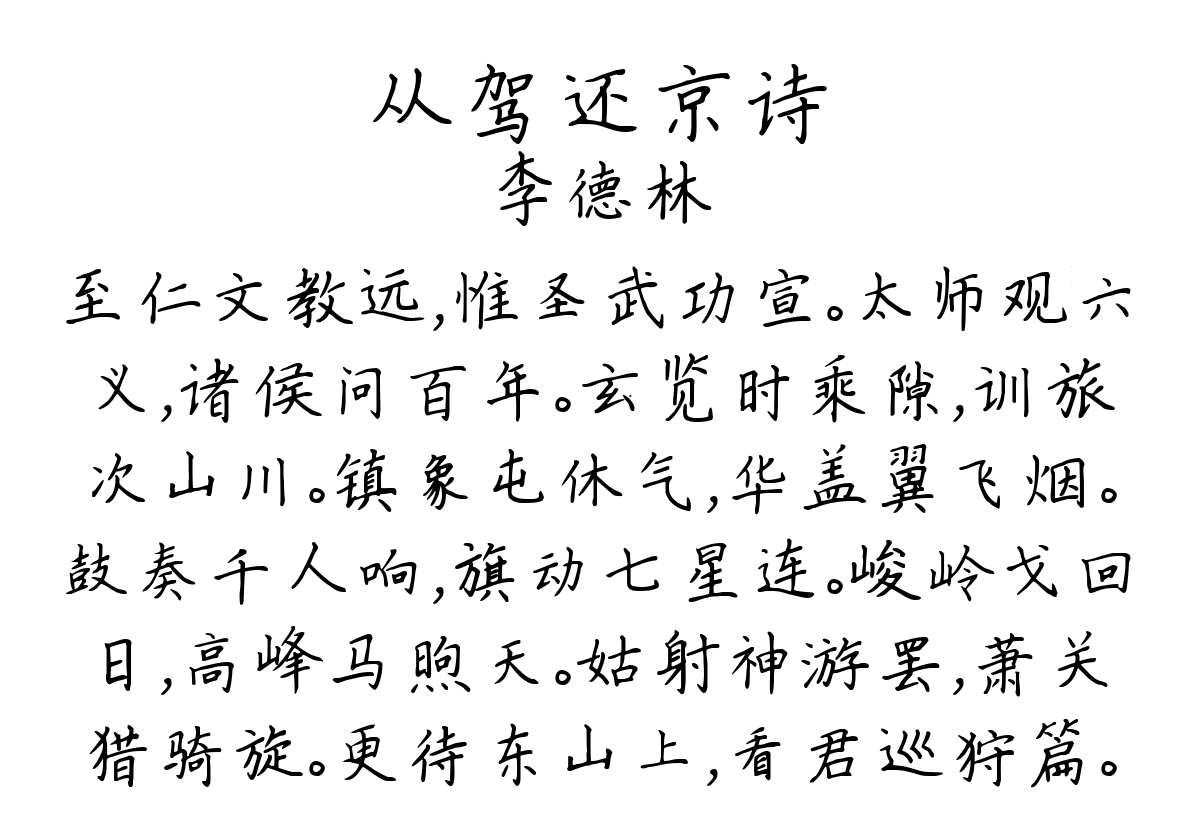 从驾还京诗
李德林
至仁文教远,惟圣武功宣。太师观六
义,诸侯问百年。玄览时乘隙,训旅
次山川。镇象屯休气,华盖翼飞烟。
鼓奏千人响,旗动七星连。峻岭戈回
日,高峰马煦天。姑射神游罢,萧关
猎骑旋。更待东山上,看君巡狩篇。